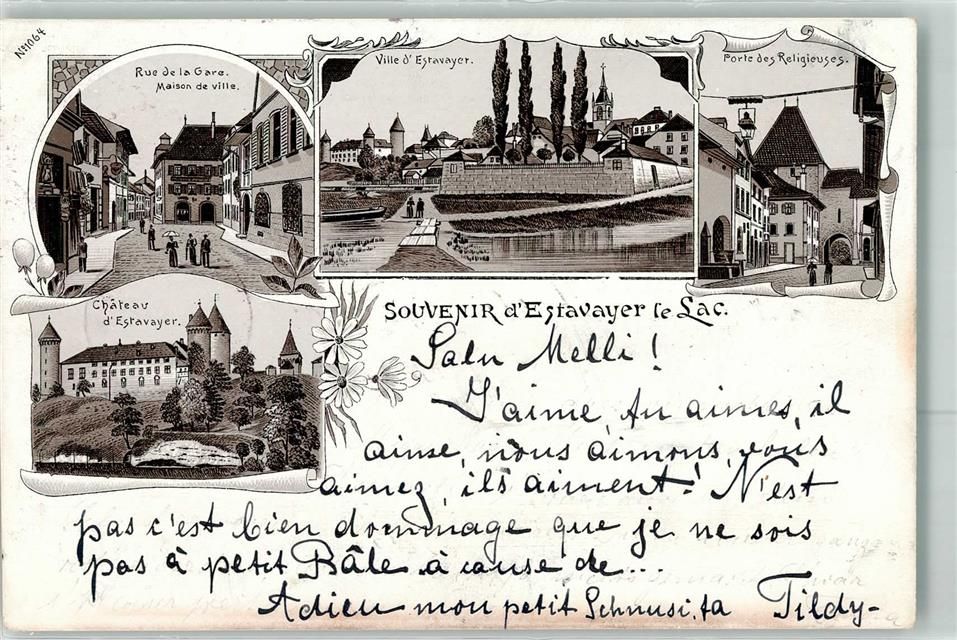 No 11064
Rue de la Gare.
Maison de ville.
Ville d'Estavayer.
Porte des Religieuses.
Château
d'Estavayer.
SOUVENIR d'Estavayer le Lac.
Salu Melli!
J'aime, tu aimes, il
aime, nous aimons, vous
aimez, ils aiment! N'est
pas c'est bien dommage que je ne sois
pas à petit Bâle à cause de...
Adieu mon petit Schnusi, ta Tildy-